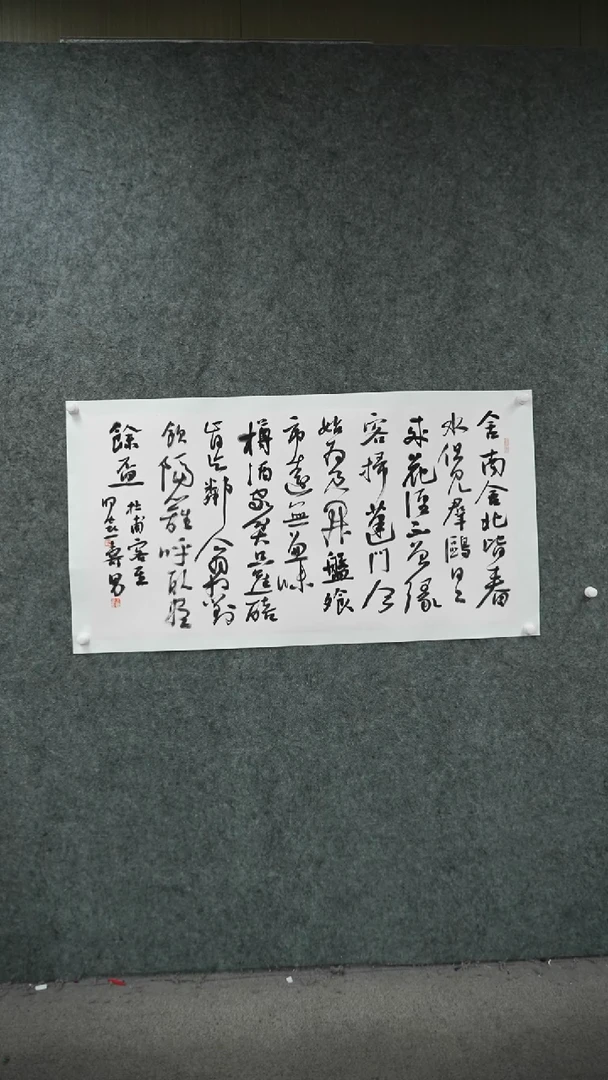 舍南舍北皆春
水但見羣鷗日日
來花徑不曾緣
客掃蓬門今
始為君開盤飧
市遠無兼味
樽酒家貧只舊醅
肯与鄰翁相對
飲隔籬呼取盡
餘盃
杜甫客至
壽男